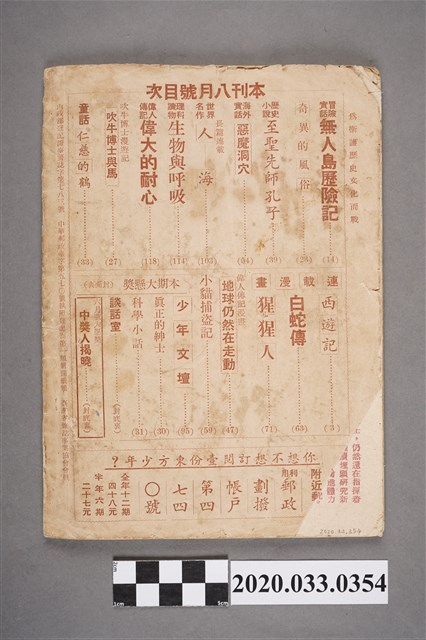 本刊八月號目次
冒險實話 無人島歷險記 (14)
奇異的風俗 (23)
歷史小說 至聖先師孔子 (39)
海外實話 惡魔洞穴 (94)
長篇連載
世界名作 人海 (103)
理科讀物 生物與呼吸 (114)
偉人傳記 偉大的耐心 (118)
吹牛博士漫遊記
吹牛博士與馬 (27)
童話 仁慈的鶴 (33)
連載漫畫
西遊記 (3)
白蛇傳 (63)
猩猩人 (71)
偉人傳記漫畫
地球仍然在走動 (47)
小貓捕盜記 (59)
本期大懸獎
少年文壇 (95)
眞正的紳士 (30)
科學小話 (31)
談話室 (封底裏)
中獎人揭曉 (封底裏)
你想不想訂閱壹份東方少年？
附近郵
利用郵政
劃撥
帳戶
第四
七四
〇號
全年十二期
四十八元
半年六期
二十七元
2020.033.0354